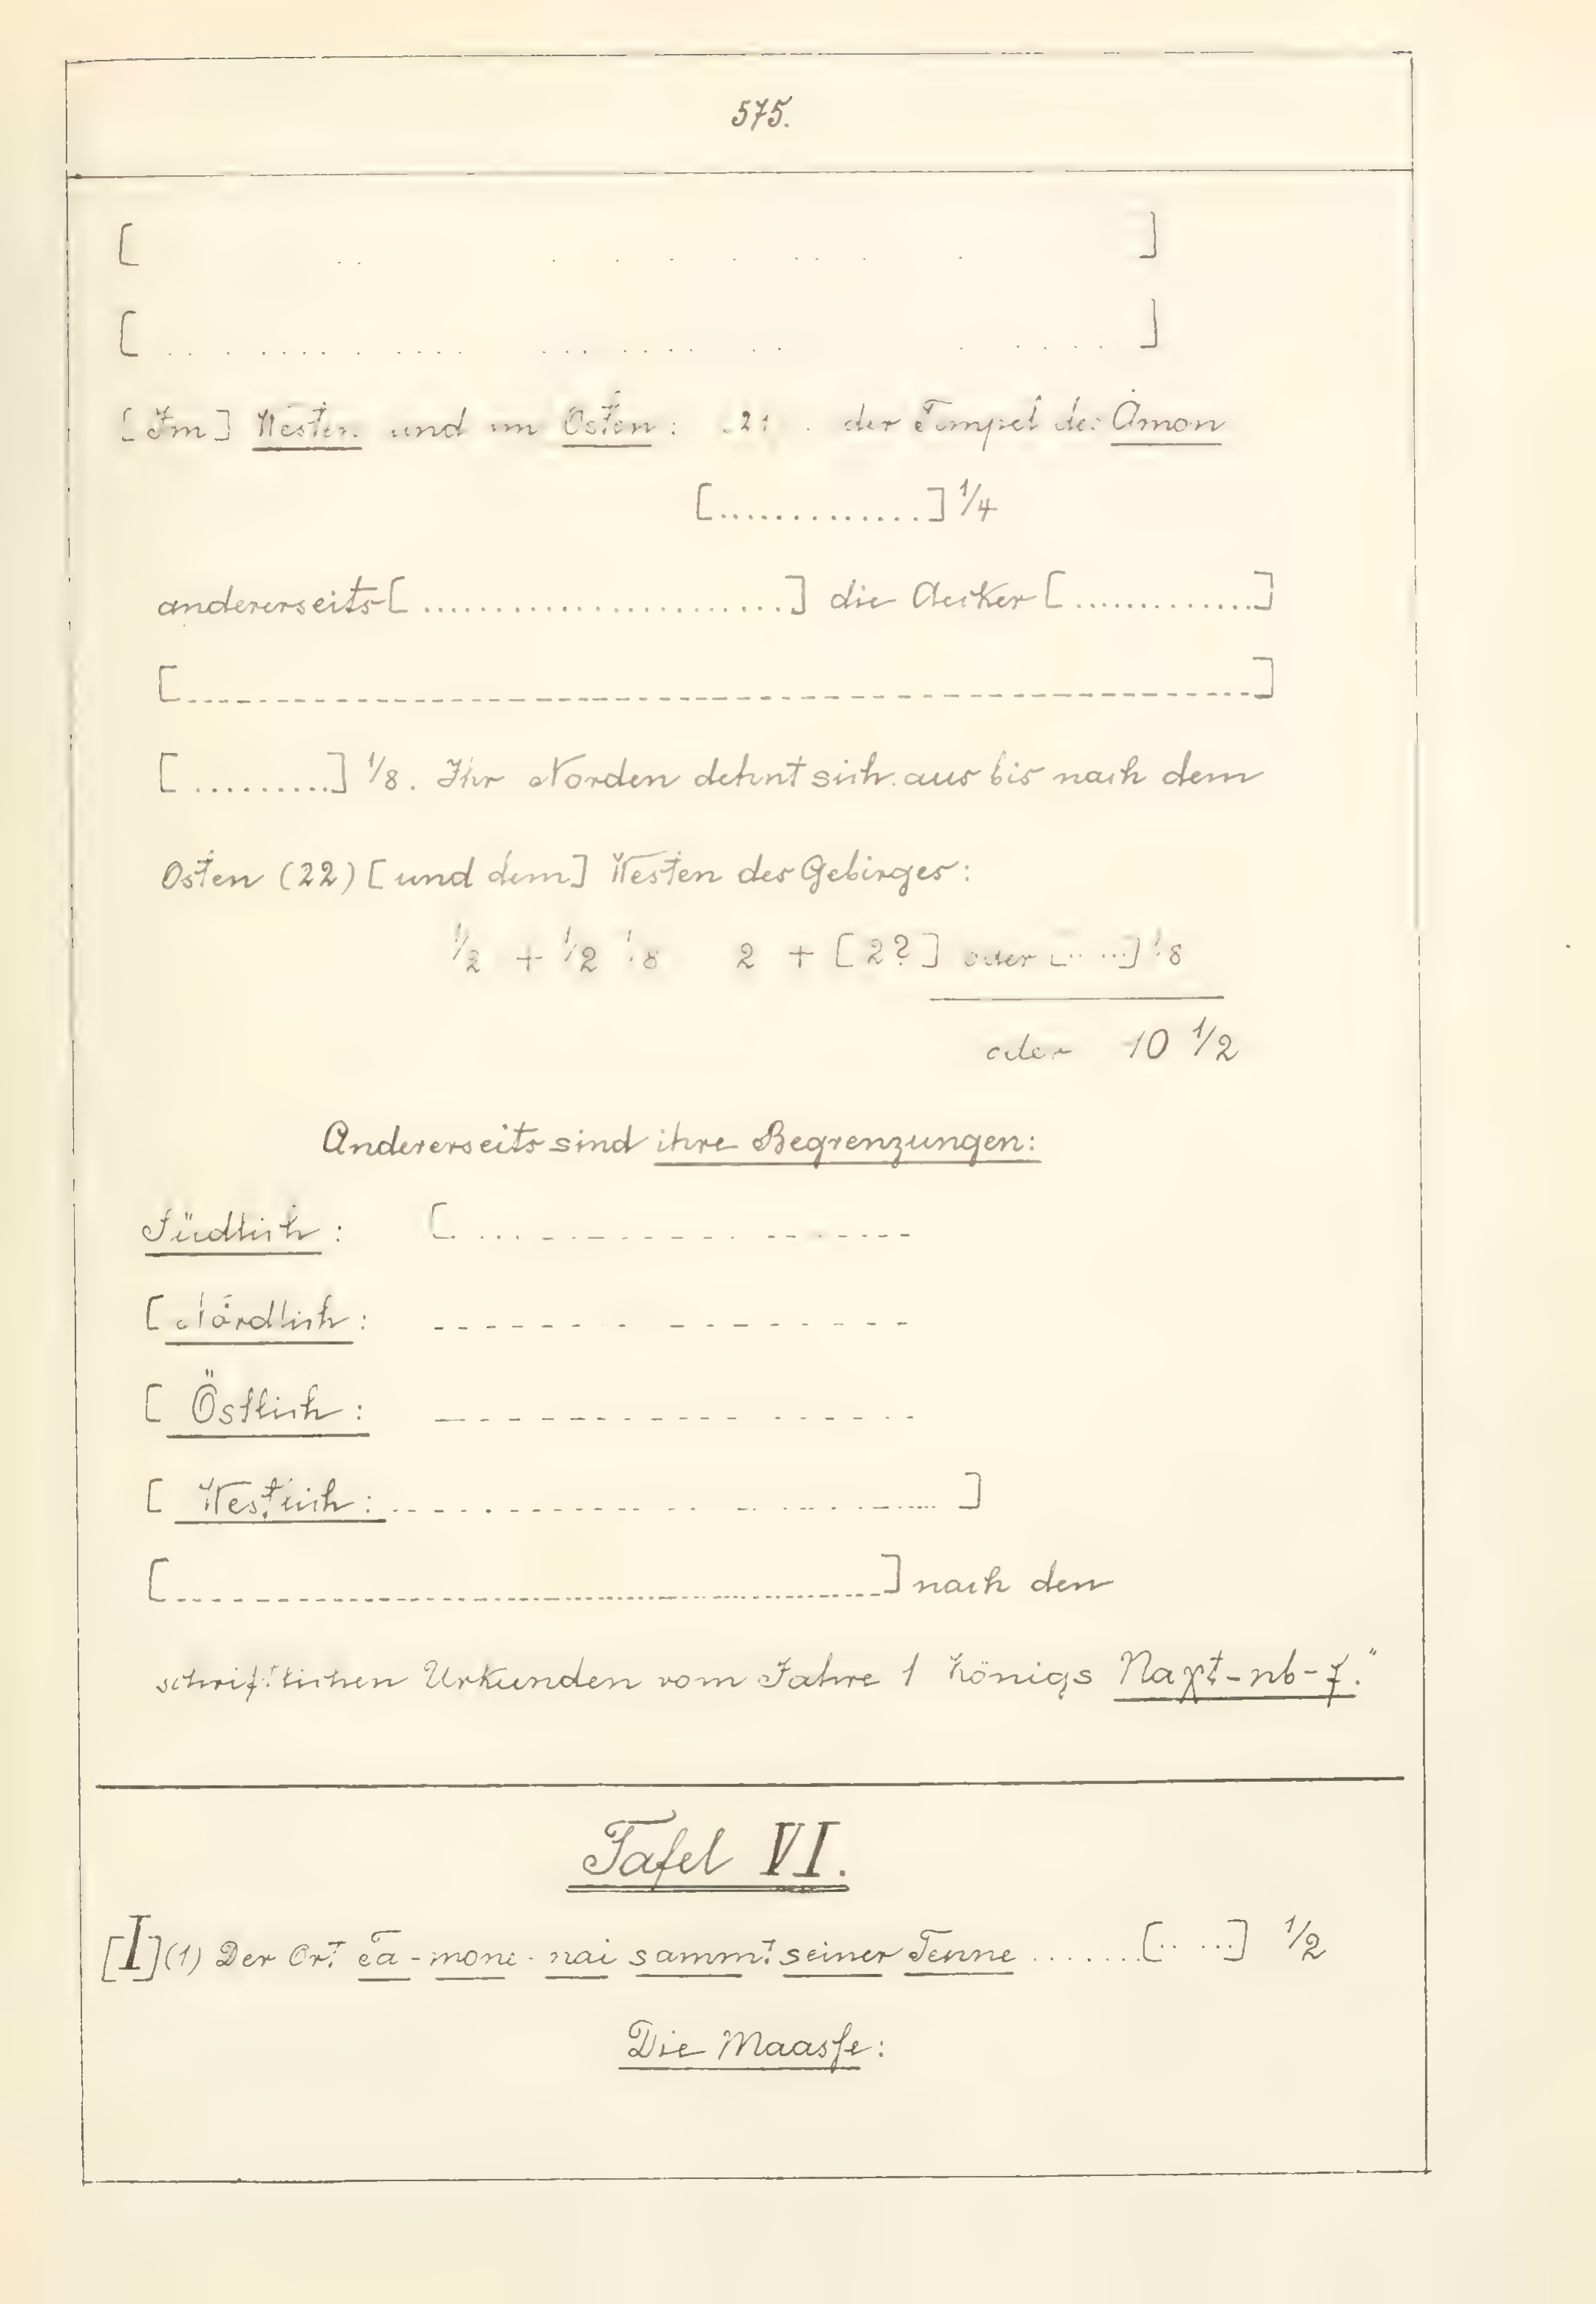 575.
[ .. . . . .. . . ]
[ .. . .... . .... ... .... .. . .... ]
[Im] Westen und im Osten: (21) . der Tempel des Amon
[..............] 1/4
andererseits [........................] die Aecker [..............]
[............................................................]
[..........] 1/8. Ihr Norden dehnt sich aus bis nach dem
Osten (22) [und dem] Westen des Gebirges:
1/2 + 1/2 1/8 2 + [2?] oder [.. ...] 1/8
oder 10 1/2
Andererseits sind ihre Begrenzungen:
Südlich: [. ... - - - - - - - - - - - -
[Nördlich: - - - - - - - - - - - - -
[Östlich: - - - - - - - - - - - - -
[Westlich: . . - - - - - - - - - - ..... ]
[............................................] nach den
schriftlichen Urkunden vom Jahre 1 Königs Naχt-nb-f."
Tafel VI.
[I] (1) Der Ort -mone-nai sammt seiner Tenne .......[.. ...] 1/2
Die Maasse: